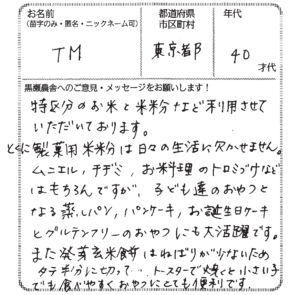 お名前
(苗字のみ・匿名・ニックネーム可)
都道府県
市区町村
年代
TM
東京都
40
才代
黒瀬農舎へのご意見・メッセージをお願いします!
特区分のお米と米粉など利用させて
いただいております。
とくに製菓用米粉は日々の生活に欠かせません。
ムニエル、チヂミ、お料理のトロミづけなど
はもちろんですが、子ども達のおやつと
なる蒸しパン、パンケーキ、お誕生日ケーキ
とグルテンフリーのおやつにも大活躍です。
また発芽玄米餅はねばりが少ないため
タテ半分に切って、トースターで焼くと小さい子
でも食べやすくおやつにとても便利です。